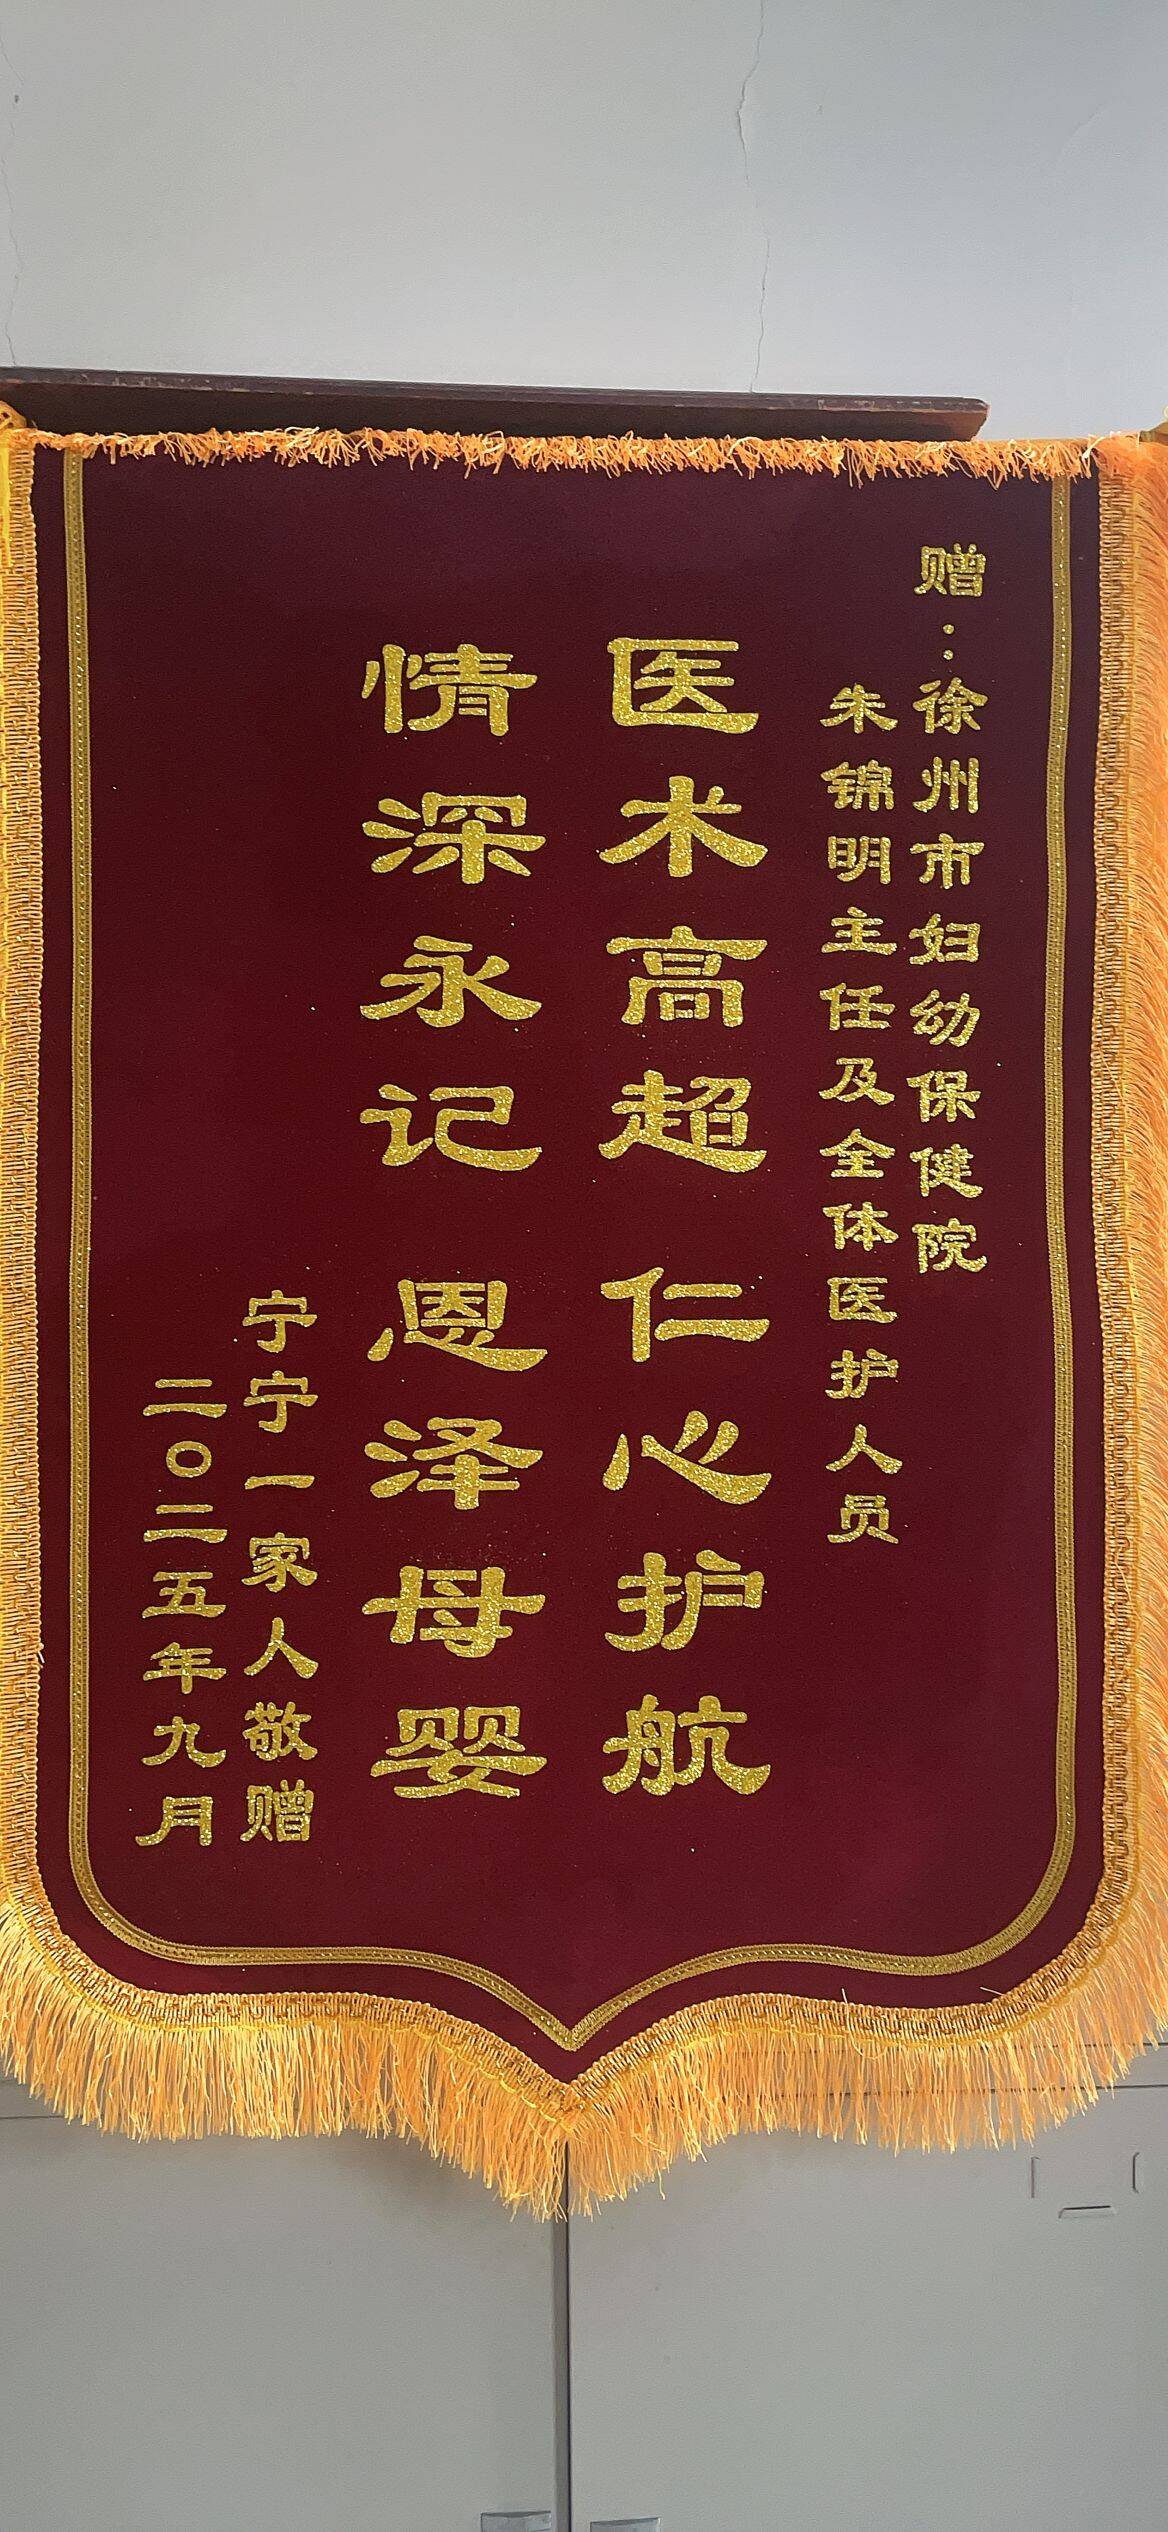 赠：徐州市妇幼保健院
朱锦明主任及全体医护人员
医术高超 仁心护航
情深永记 恩泽母婴
宁宁一家人敬赠
二〇二五年九月